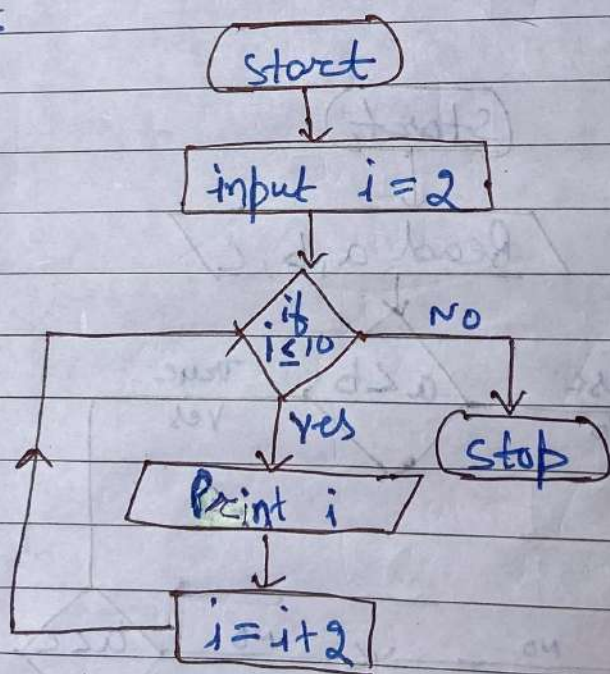 Start
input i = 2
if
i ≤ 10
NO
yes
Stop
Print i
i = i + 2